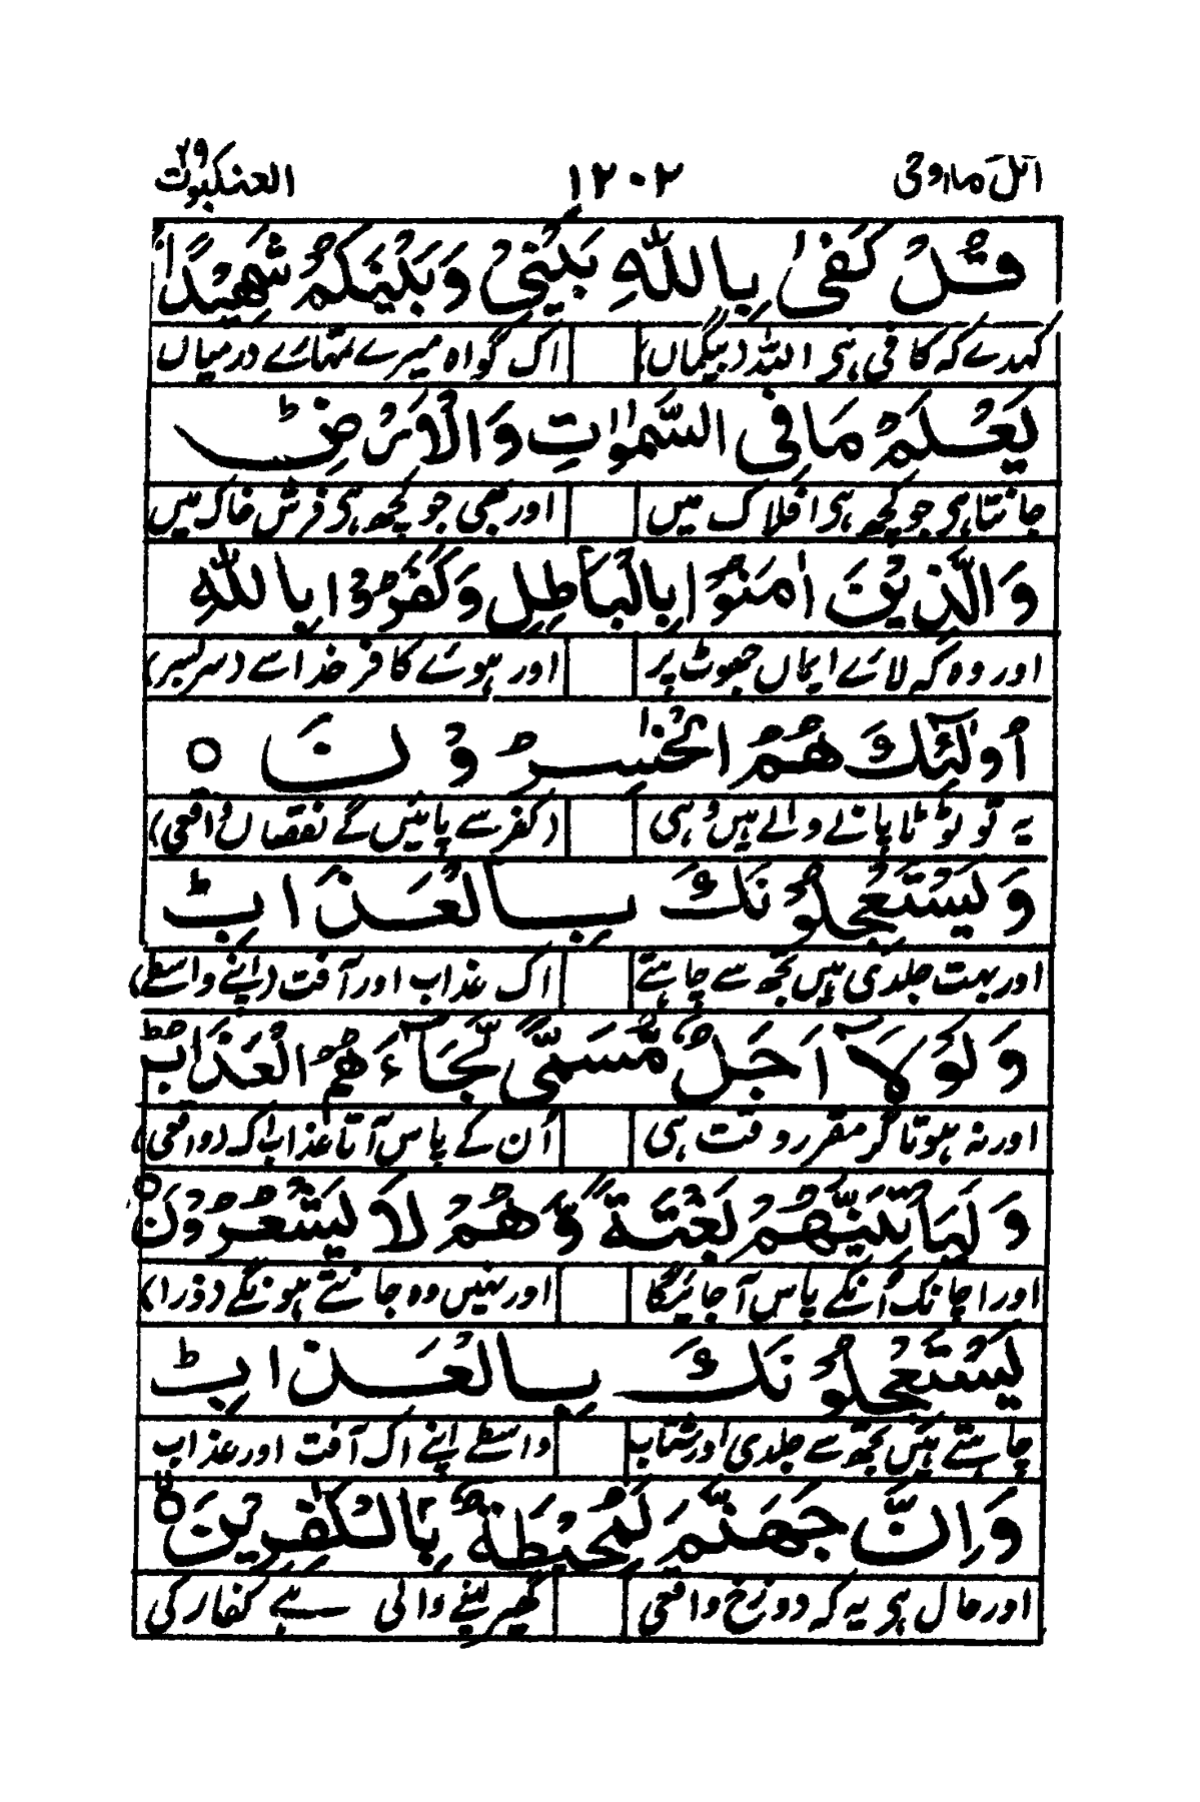 اتل مااوحی ۱۲۰۲ العنکبوت ۲۹
قُلْ كَفٰى بِاللّٰهِ بَيْنِيْ وَبَيْنَكُمْ شَهِيْدًا ۚ
کہدے کہ کافی ہی اللہ (بیگماں) اک گواہ میرے تمہارے درمیاں
يَعْلَمُ مَا فِى السَّمٰوٰتِ وَالْاَرْضِ ؕ
جانتا ہی جو کچھ ہی افلاک میں اور بھی جو کچھ ہی فرش خاک میں
وَالَّذِيْنَ اٰمَنُوْا بِالْبَاطِلِ وَكَفَرُوْا بِاللّٰهِ
اور وہ کہ لائے ایماں جھوٹ پر اور ہوئے کافر خدا سے (سربسر)
اُولٰٓئِكَ هُمُ الْخٰسِرُوْنَ ○
یہ تو ٹوٹا پانے والے ہیں وہی (کفر سے پائیں گے نقصاں واقعی)
وَيَسْتَعْجِلُوْنَكَ بِالْعَذَابِ ؕ
اور بہت جلدی ہیں تجھ سے چاہتے اک عذاب اور آفت (اپنے واسطے)
وَلَوْلَاۤ اَجَلٌ مُّسَمًّى لَّجَآءَهُمُ الْعَذَابُ ؕ
اور نہ ہوتا گر مقرر وقت ہی اُن کے پاس آتا عذاب اک (واقعی)
وَلَيَاْتِيَنَّهُمْ بَغْتَةً وَّهُمْ لَا يَشْعُرُوْنَ ○
اور اچانک اُنکے پاس آ جائیگا اور نہیں وہ جانتے ہونگے (ذرا)
يَسْتَعْجِلُوْنَكَ بِالْعَذَابِ ؕ
چاہتے ہیں تجھ سے جلدی اور شتاب واسطے اپنے اک آفت اور عذاب
وَاِنَّ جَهَنَّمَ لَمُحِيْطَةٌۢ بِالْكٰفِرِيْنَ ○
اور حال ہی یہ کہ دوزخ واقعی گھیر لینے والی ہے کفار کی